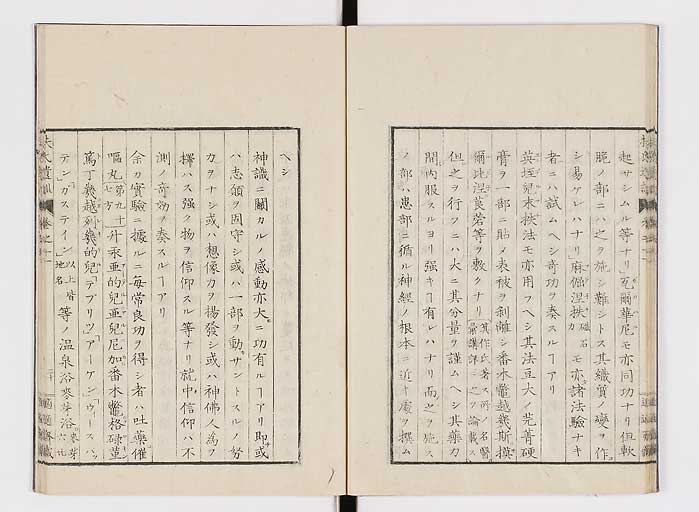 起サシムル等ナリ瓦爾華尼モ亦同功ナリ但軟
脆ノ部ニハ之ヲ施シ難シトス其織質ノ變ヲ作
シ易ケレハナリ麻倔涅扶磁石カモ亦諸法驗ナキ
者ニハ試ムヘシ奇功ヲ奏スルヿアリ
英垤兒木扶法モ亦用フヘシ其法豆大ノ芫菁硬
膏ヲ一部ニ貼メ表被ヲ剥離シ番木鼈越幾斯摸
爾比涅莨菪等ヲ敷クナリ
但之ヲ行フニハ大ニ其分量ヲ謹ムヘシ其藥力
間内服スルヨリ強キヿ有レハナリ而之ヲ施ス
ノ部ハ患部ニ循ル神經ノ根本ニ近キ處ヲ撰ム
ヘシ
神識ニ關カルノ感動亦大ニ功有ルヿアリ即或
ハ志願ヲ固守シ或ハ一部ヲ動サントスルノ努
力ヲナシ或ハ想像力ヲ揚發シ或ハ神佛人爲ヲ
擇ハス強ク物ヲ信仰スル等ナリ就中信仰ハ不
測ノ奇功ヲ奏スルヿアリ
余カ實驗ニ據ルニ毎常良功ヲ得シ者ハ吐藥催
嘔丸第九十七方升汞亜的兒亜兒尼加番木鼈格碌菫
篤丁幾越列幾的兒テプリツアーケンヴースハ
テンガステイン以上皆地名等ノ温泉浴麥芽浴麥芽六七